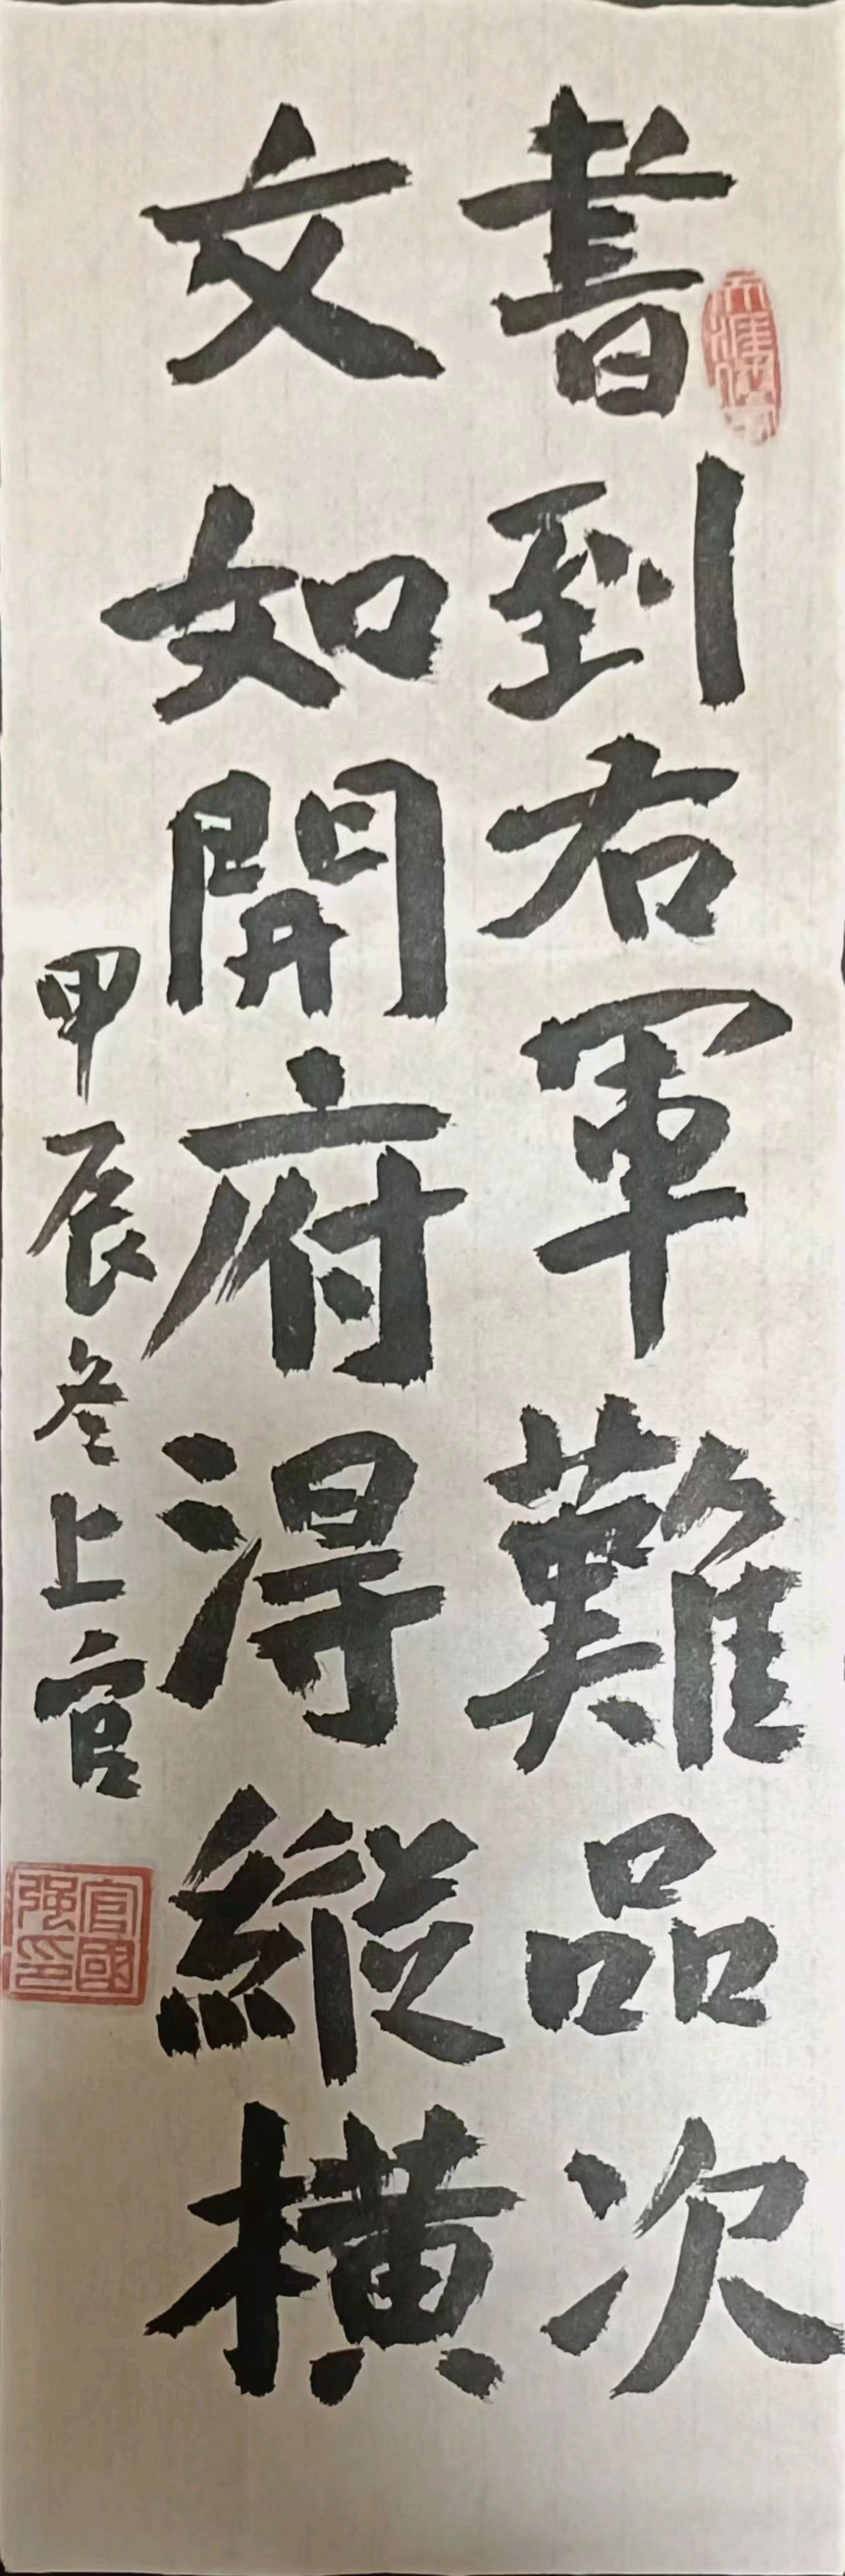 書到右軍難品次
文如開府得縱橫
甲辰冬上官
官國强印